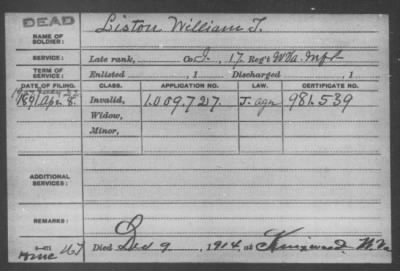 DEAD
NAME OF SOLDIER:
Liston William T.
SERVICE:
Late rank, Co. I, 17 Reg't W Va. Inf
TERM OF SERVICE:
Enlisted , 1 Discharged , 1
DATE OF FILING. CLASS. APPLICATION NO. LAW. CERTIFICATE NO.
1891 Apr. 8. Invalid, 1.009.727. J. agn 981.539
Widow,
Minor,
ADDITIONAL SERVICES:
REMARKS:
Died Dec 9, 1914, at Kingwood, W. Va